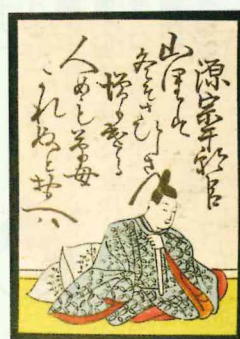 源宗于朝臣
山里は
冬そさひしさ
増りける
人めも草母
かれぬと思へハ